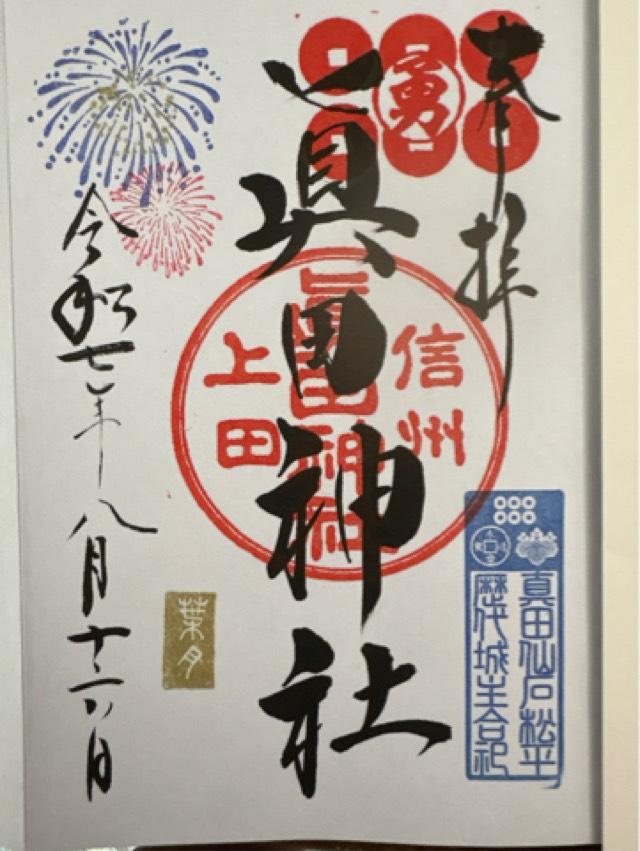 奉拝
勇
眞田神社
信州
眞田神社
上田
真田仙石松平
歴代城主合祀
葉月
令和七年八月十六日